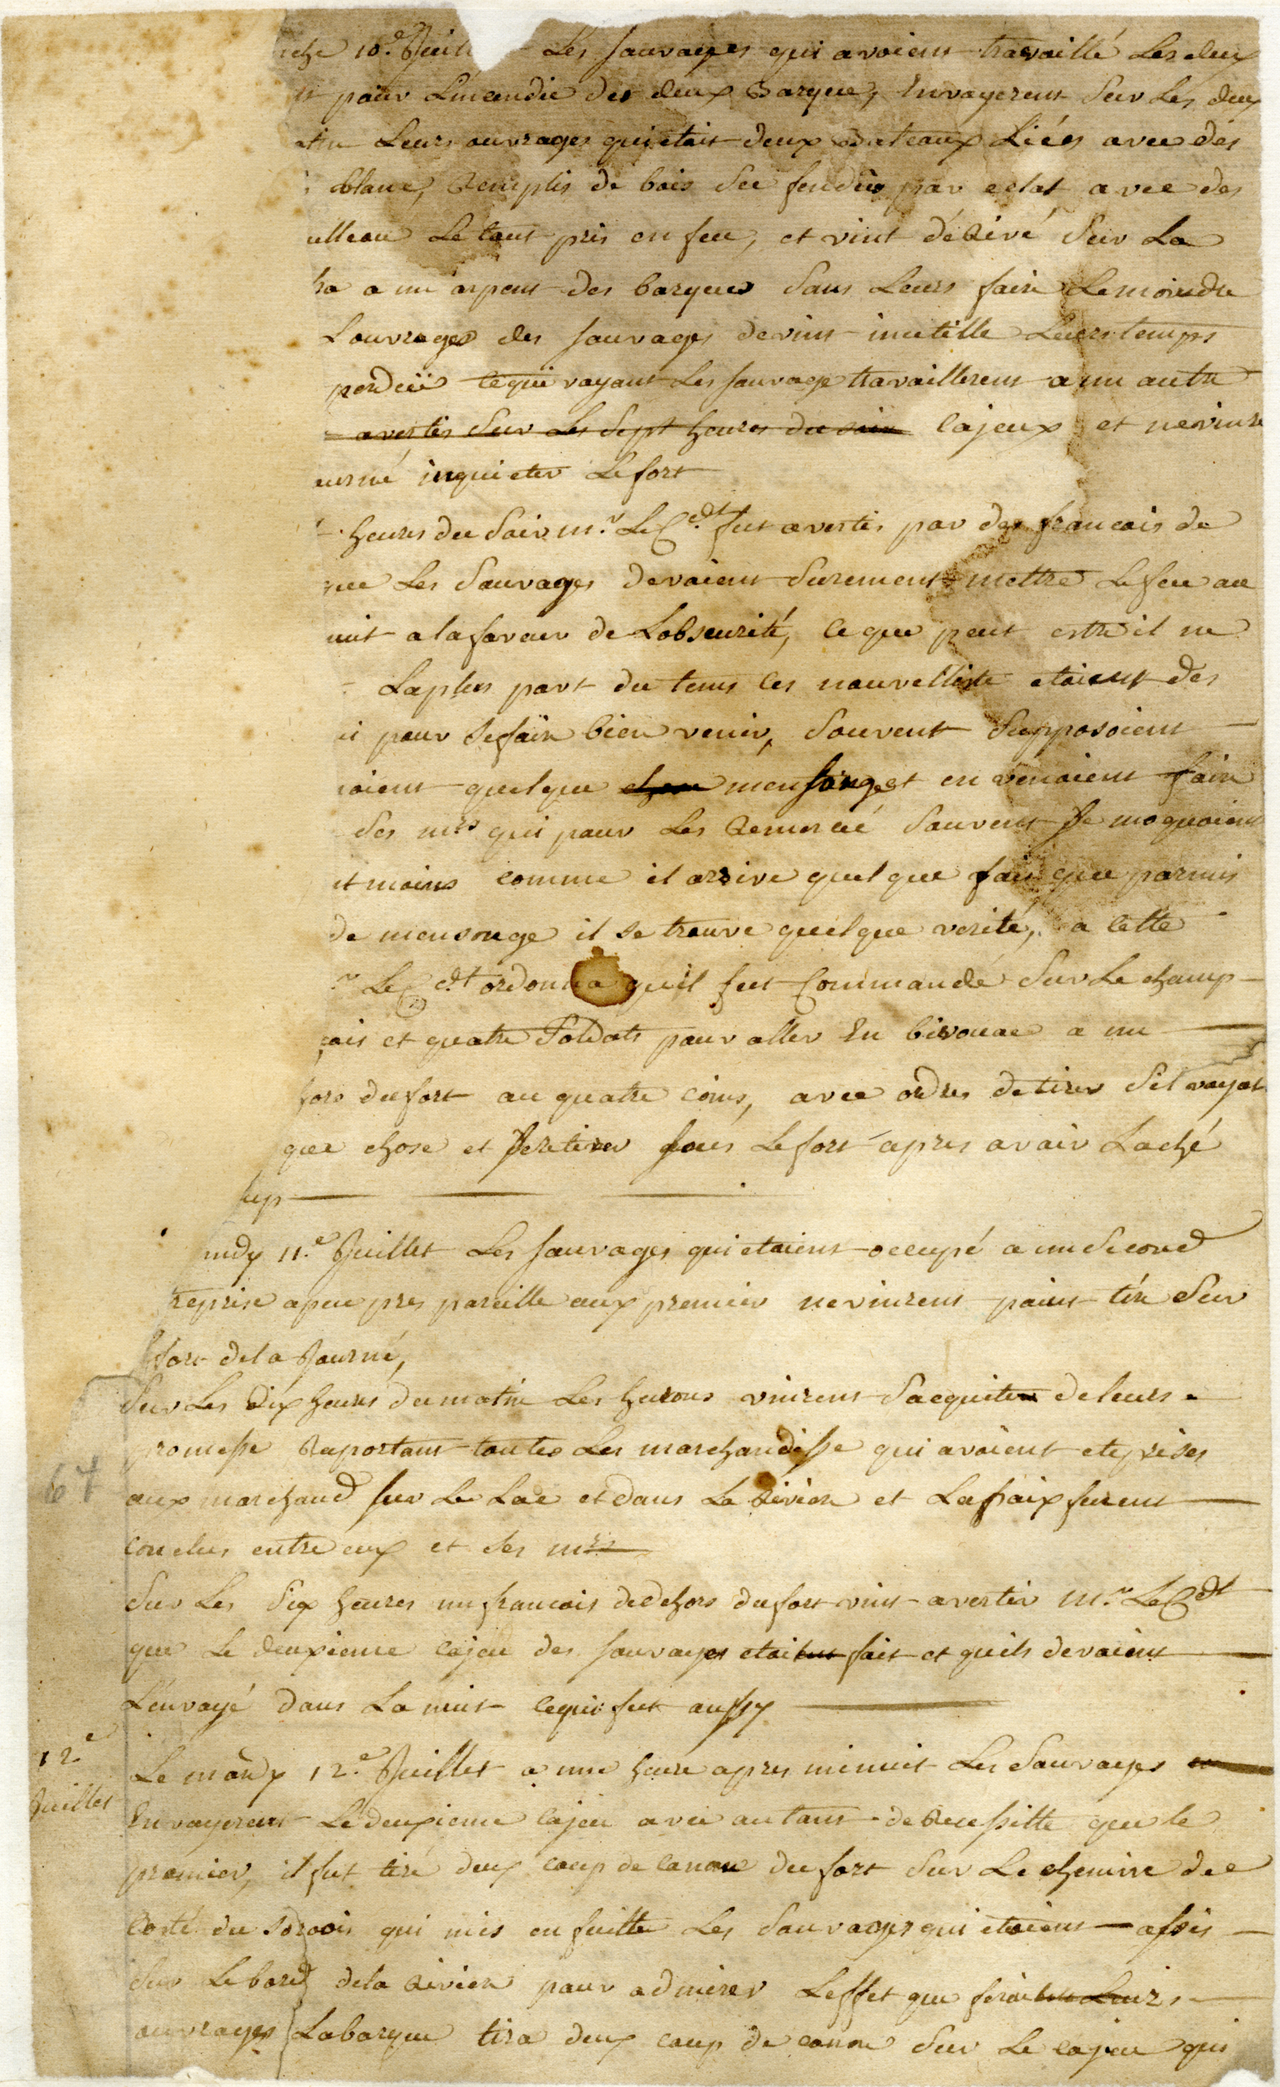 che 10.e Juil Les sauvages qui avoient travaillé Les deux
pour Lincendie des deux Barque, Envoyerent Sur Les deux
atin Leurs ouvrages qui etait deux Bateaux Liéés avec des
blanc, Remplis de bois Sec fendus par eclat avec des
ulleau Le tout pris en feu, et vint dérivé Sur La
ha a un arpent des barques Sans Leurs faire Lemoindre
Louvrages des sauvages devint inutille Leurs temps
perduë cequi voyant Les sauvage travaillerent a un autre
avertis Sur Les Sept heures du soir Cajeux et nevinre
urné inquieter Le fort
heures du Soir m.r Le C.dt fut avertis par des francais de
que Les Sauvages devoient Surement mettre Le feu au
nuit a lafaveur de Lobscurité, Ce que peut estre il ne
Laplus part du tems Ces nouvelliste etaient des
i pour Sefaire bien venir, Souvent Supposoient
oient quelque chose mensonge et en venaient faire
des mrs qui pour Les Remercié Souvent Se moquoient
et moins comme il arrive quelque fois que parmis
de mensonge il se trouve quelque verité, a Cette
r Le C dt ordonna quil fut Commandé Sur Le champ
çais et quatre Soldats pour aller En bivouac a un
hors du fort au quatre coins, avec ordres de tirer Sil voyat
que chose et Seretirer sous Le fort apres avoir Laché
up
undy 11.e Juillet Les sauvages qui etaient occupé a un Second
treprise apeu pres pareille aux premier nevinrent point tiré Sur
fort dela Journé,
Sur Les Dix heures du matin Les hurons vinrent Sacquiter deleurs
promesse Raportant toutes Les marchandisse qui avoient eteprises
aux marchand sur Le Lac et dans La Riviere et Lapaix furent
67
conclus entre eux et Ses mrs
Sur Les Six heures un francais dedehors dufort vint avertir M.r Le C dt
que Le deuxieme cajeu des sauvages etaitent fait et quils devoient
Lenvoyé dans La nuit cequi fut aussy
12e
Juillet
Le mardy 12.e Juillet a une heure apres minuit Les Sauvages
Envoyerent Le deuxieme Cajeu avec autant de Reussitte que le
premier, il fut tiré deux coup de Canon du fort Sur Le chemin de
Costé du Sorois qui mis en fuitte Les Sauvages qui etaient assis
Sur Lebord dela Riviere pour admirer Leffet que feroitent Leurs
ouvrages Labarque tira deux coup de canon Sur Le cajeu qui